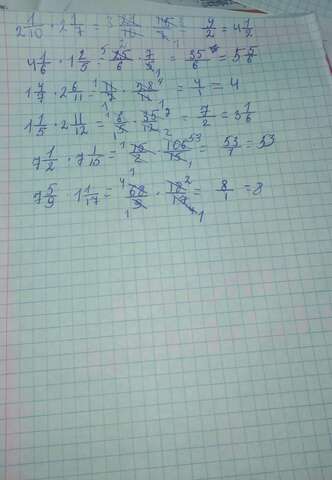 2 1/10 · 2 1/7 = 3 21/10 · 15/7 = 9/2 = 4 1/2
4 1/6 · 1 2/5 = 5 25/6 · 7/5 = 35/6 = 5 5/6
1 4/7 · 2 6/11 = 1 11/7 · 28/11 4 = 4/1 = 4
1 1/5 · 2 11/12 = 1 6/5 · 35/12 7 2 = 7/2 = 3 1/6
7 1/2 · 7 1/15 = 1 15/2 · 106/15 53 1 = 53/1 = 53
7 5/9 · 1 1/17 = 4 68/9 1 · 18/17 2 1 = 8/1 = 8